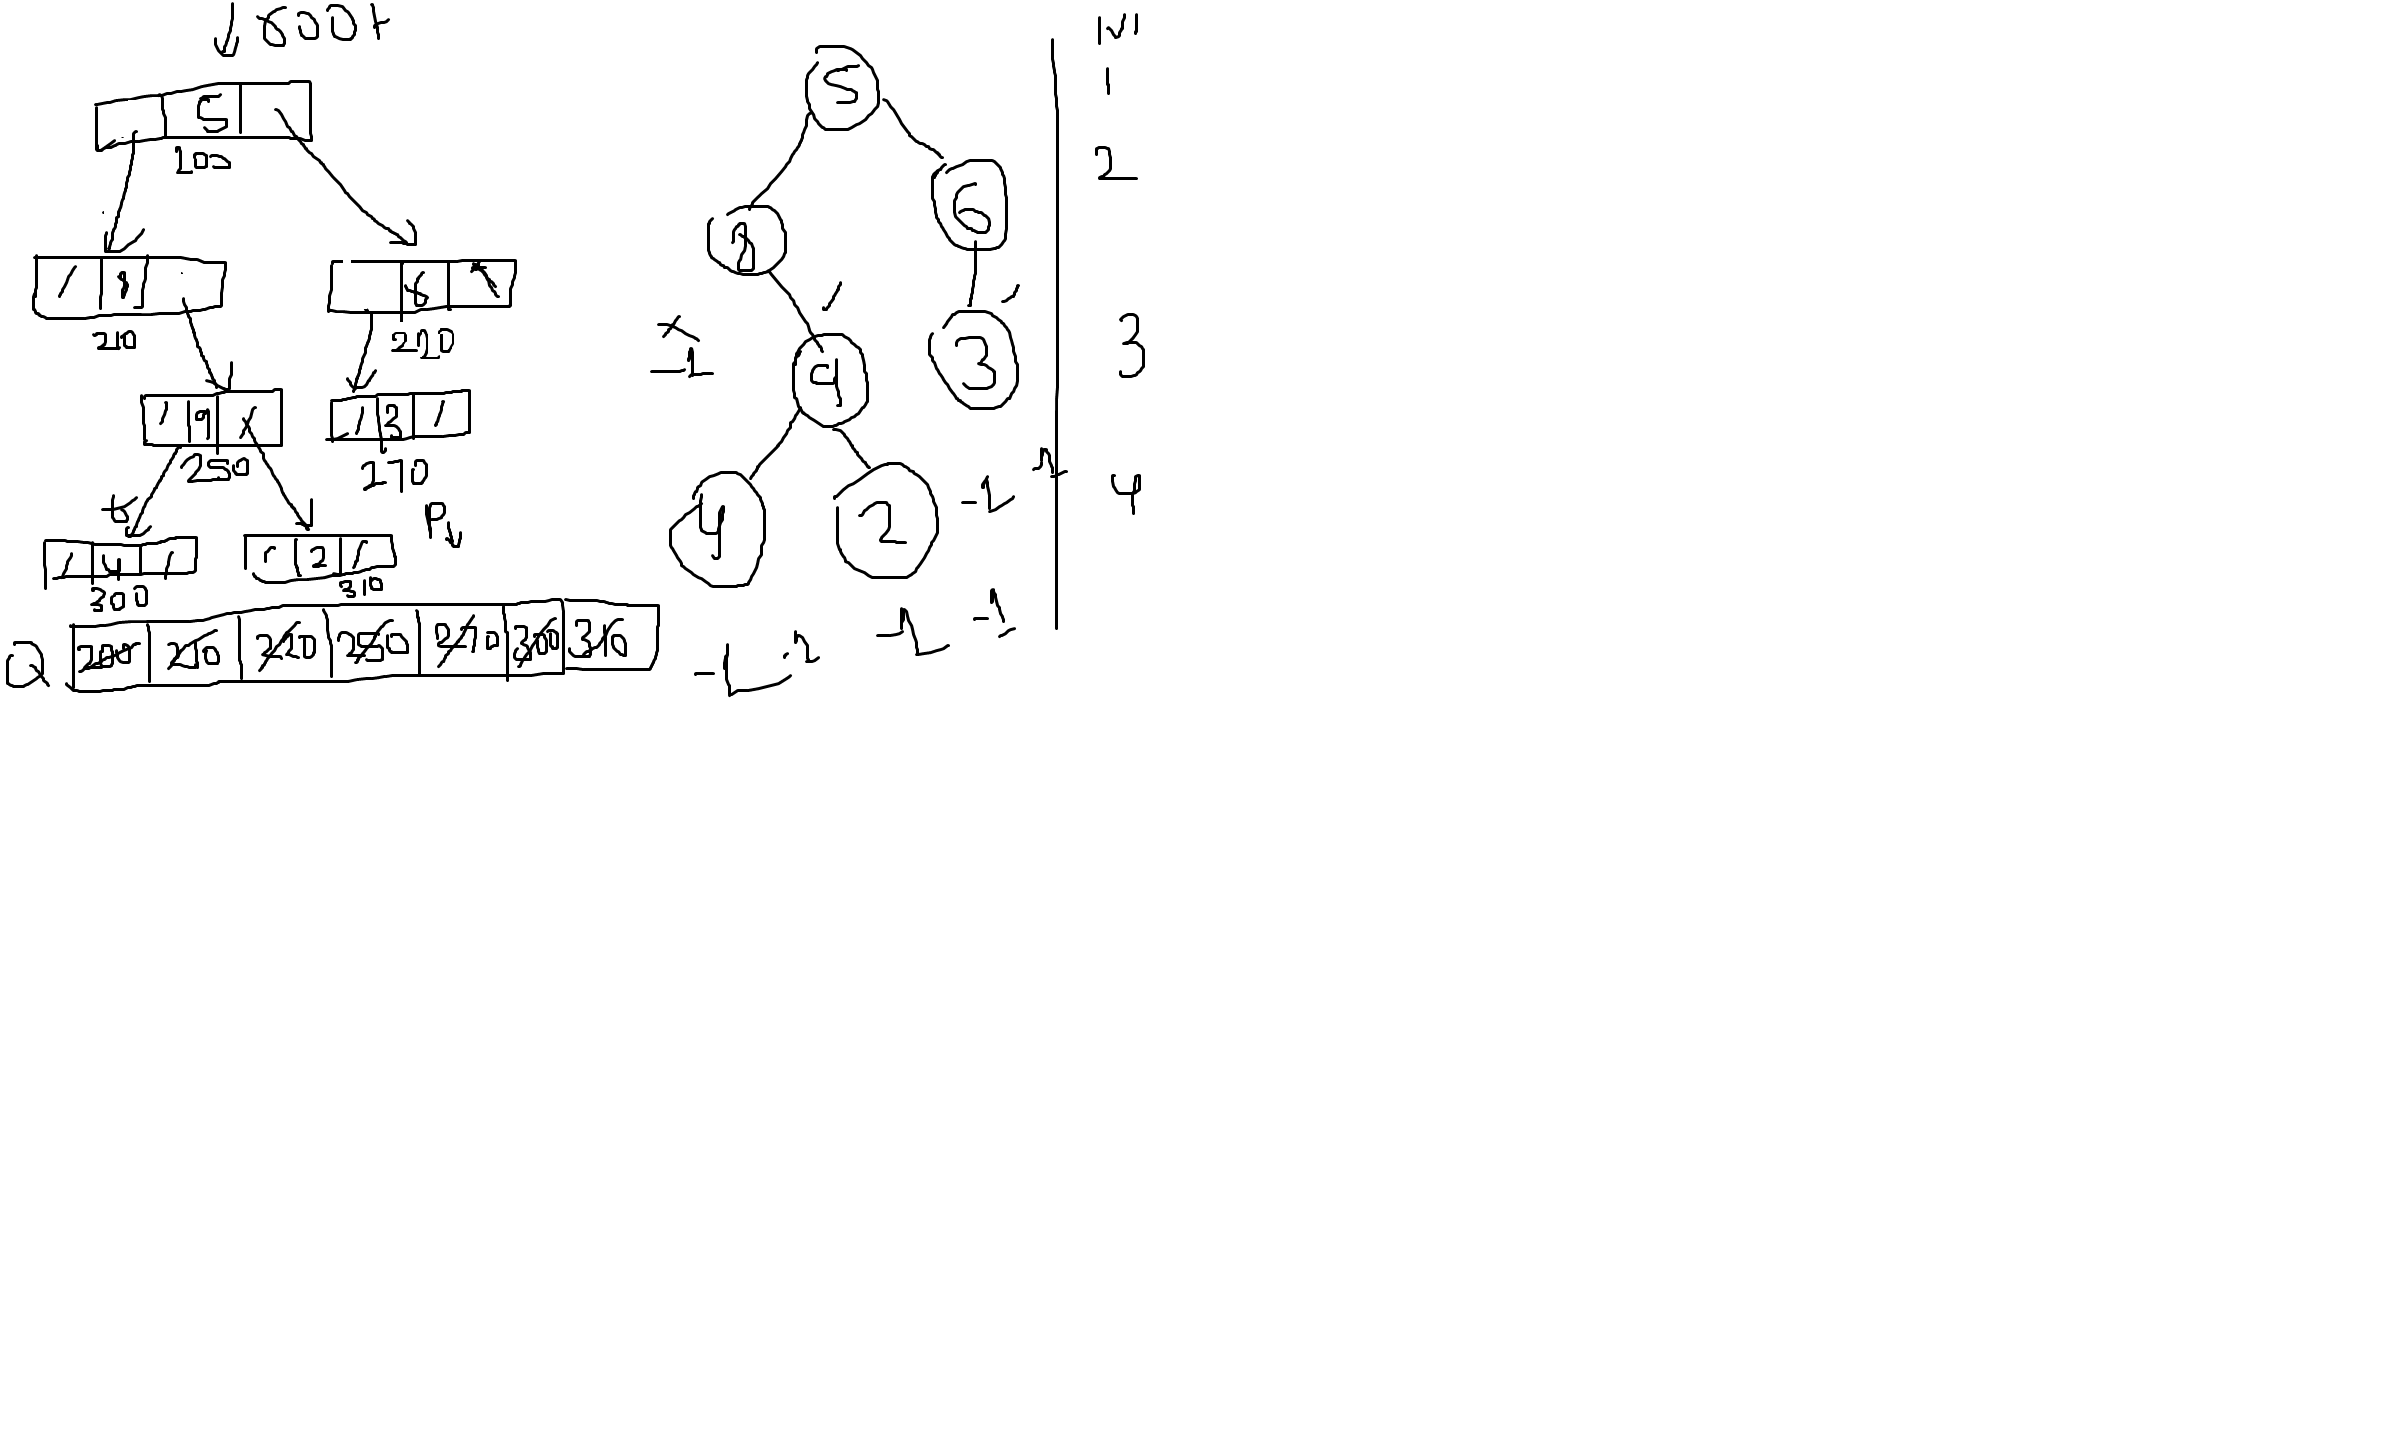 root
5
200
8
6
210
220
9
3
250
270
t
P
4
2
300
310
Q 200 210 220 250 270 300 310
5
8
6
9
3
4
2
-1
-1
-1
-1
-1
lvl
1
2
3
4